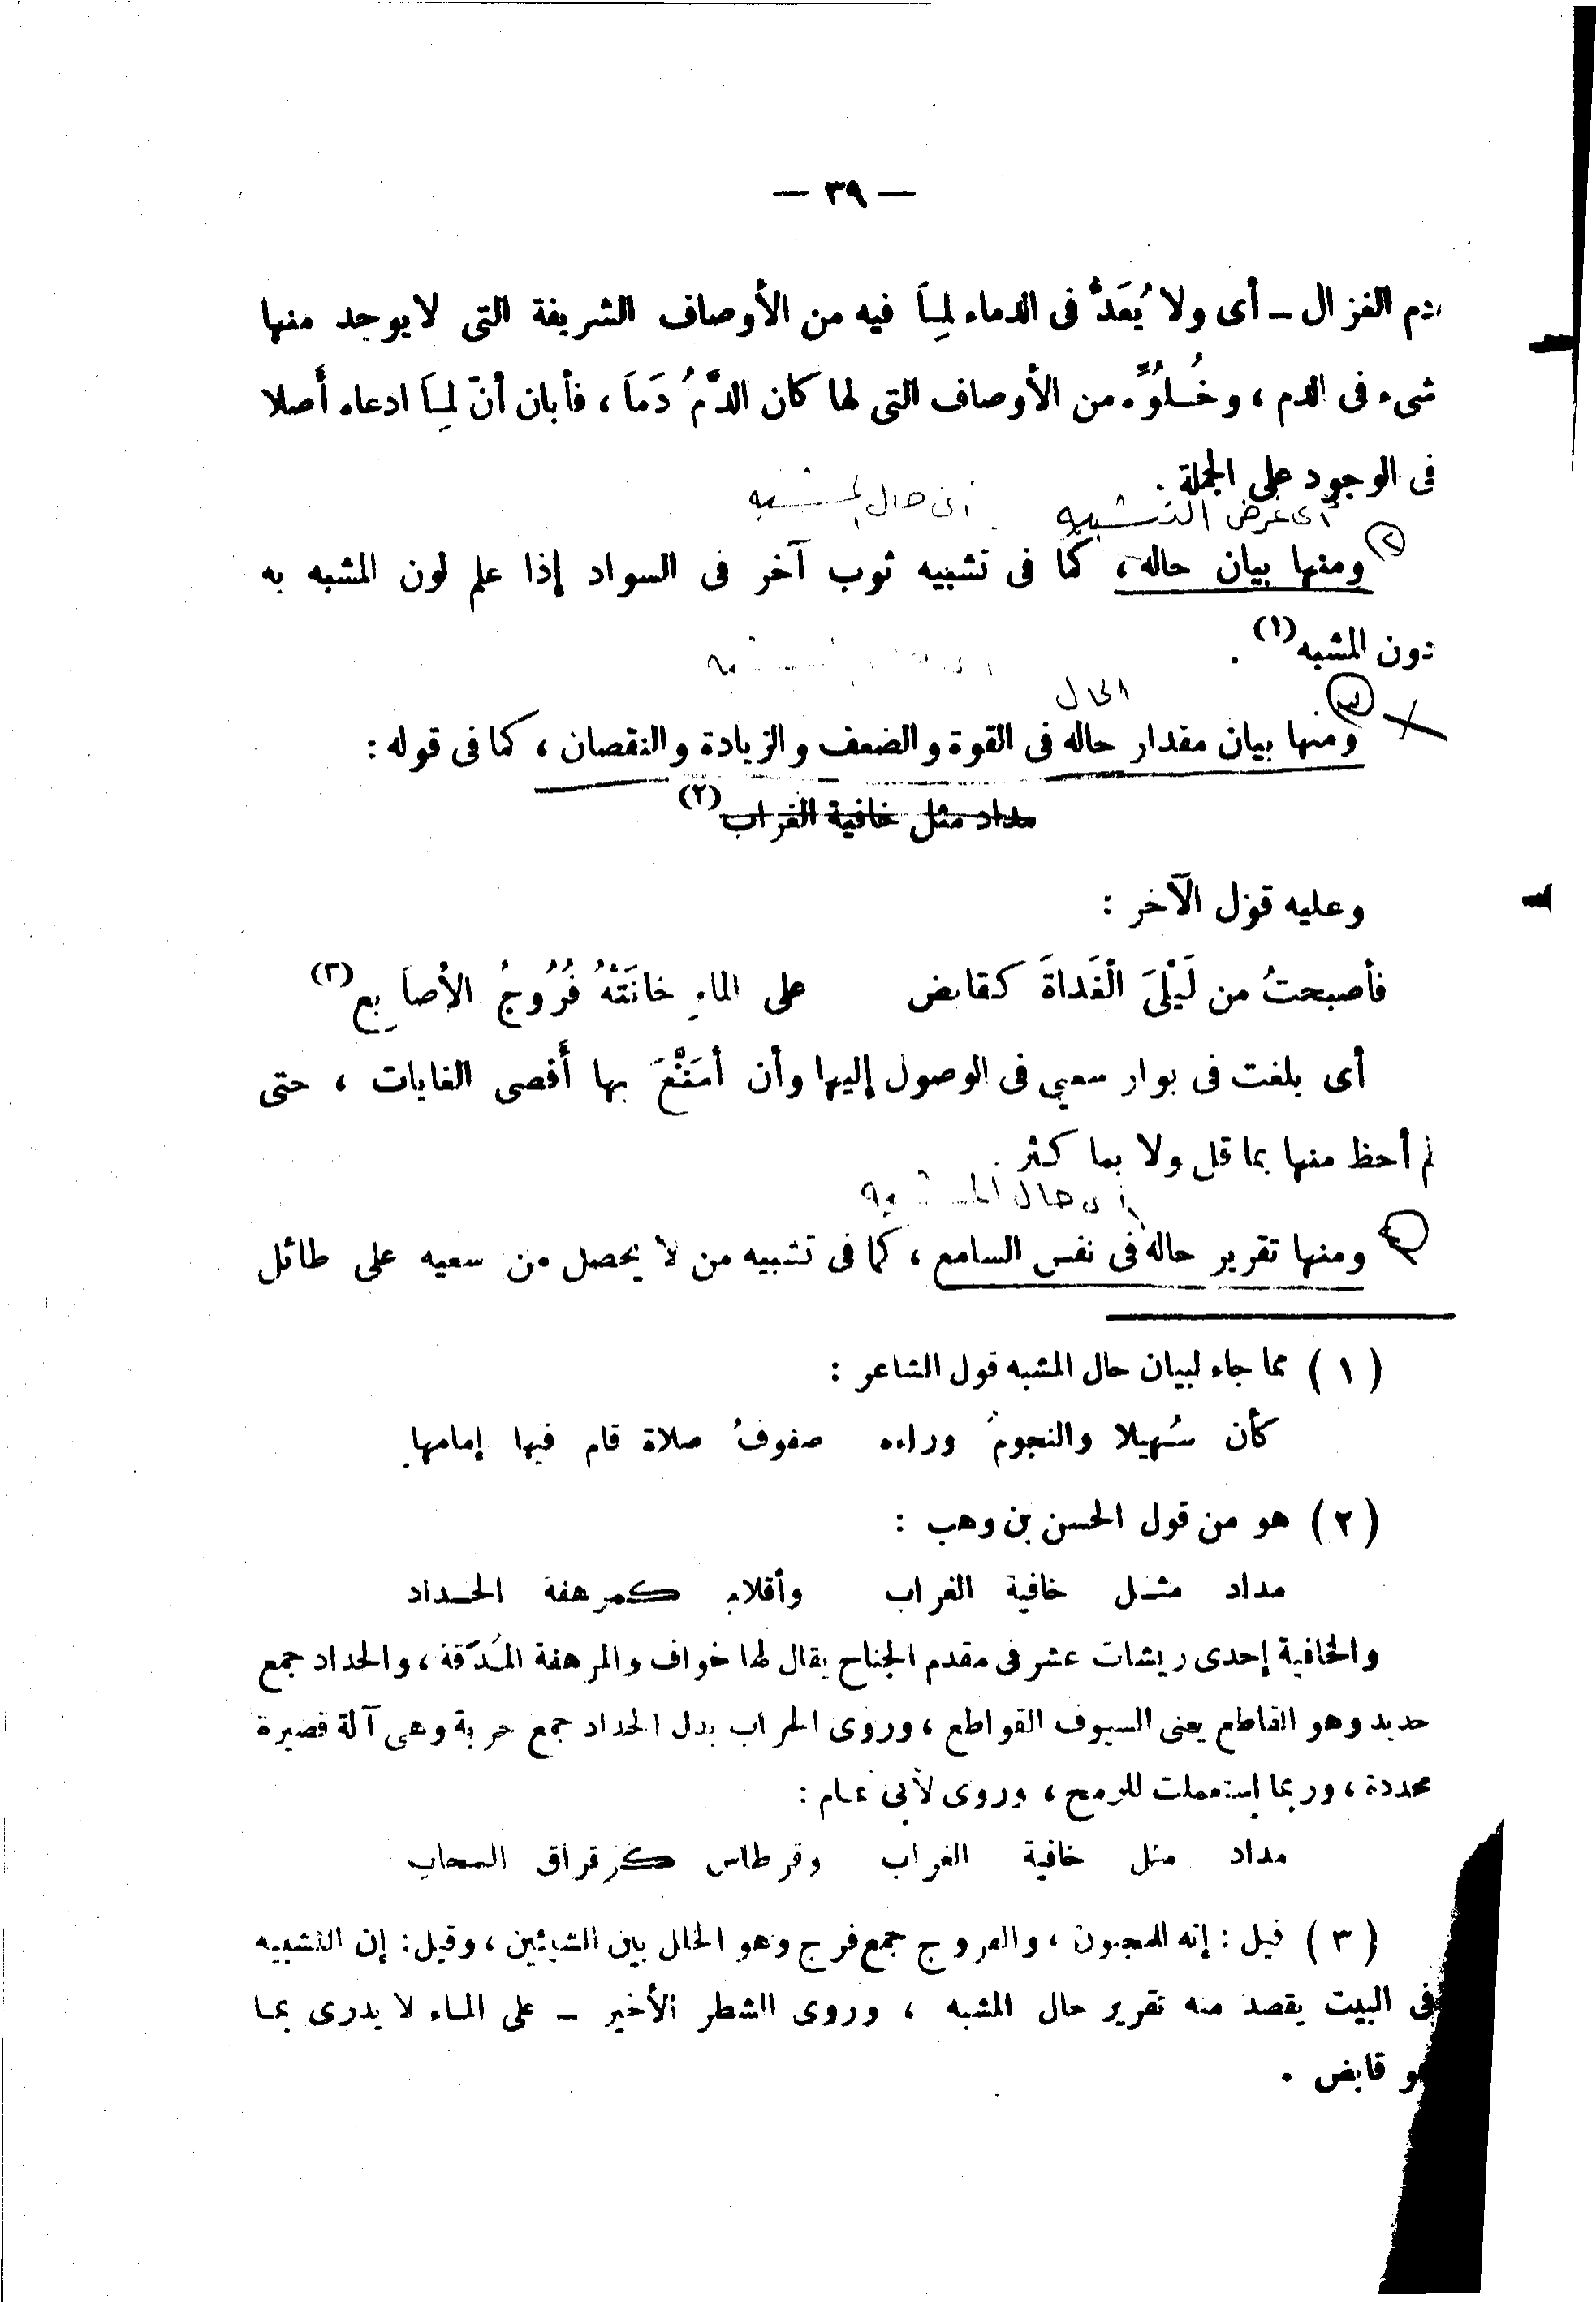 — ٣٩ —
دم الغزال ـ أى ولا يُعَدُّ فى الدماء لِمَا فيه من الأوصاف الشريفة التى لا يوجد منها
شىء فى الدم ، وخُلُوِّه من الأوصاف التى لها كان الدَّمُ دَمَا ، فأبان أنّ لِمَا ادعاه أَصلا
فى الوجود على الجملة .
أى غرض التشبيه
أى حال المشبه
٢
ومنها بيان حاله ، كما فى تشبيه ثوب آخر فى السواد إذا علم لون المشبه به
دون المشبه (١) .
الحال
٣
ومنها بيان مقدار حاله فى القوة والضعف والزيادة والنقصان ، كما فى قوله :
مداد مثل خافية الغراب (٢)
وعليه قول الآخر :
فأصبحتُ من لَيْلَىَ الْغَداةَ كقابض على الماءِ خانَتْهُ فُرُوجُ الأصابِع (٣)
أى بلغت فى بوار سعيى فى الوصول إليها وأن أمَتَّعَ بها أَقصى الغايات ، حتى
لم أحظ منها بما قل ولا بما كثر .
أى حال المشبه
٤
ومنها تقرير حاله فى نفس السامع ، كما فى تشبيه من لا يحصل من سعيه على طائل
(١) مما جاء لبيان حال المشبه قول الشاعر :
كأن سُهيلا والنجومَ وراءه صفوفُ صلاة قام فيها إمامها
(٢) هو من قول الحسن بن وهب :
مداد مثل خافية الغراب وأقلام كمرهفة الحداد
والخافية إحدى ريشات عشر فى مقدم الجناح يقال لها خواف والمرهفة المُدقّقة ، والحداد جمع
حديد وهو القاطع يعنى السيوف القواطع ، وروى الحراب بدل الحداد جمع حربة وهى آلة قصيرة
محددة ، وربما إستعملت للرمح ، وروى لأبى تمام :
مداد مثل خافية الغراب وقرطاس كرقراق السحاب
(٣) قيل : إنه للمجنون ، والفروج جمع فرج وهو الخلل بين الشيئين ، وقيل : إن التشبيه
فى البيت يقصد منه تقرير حال المشبه ، وروى الشطر الأخير ـ على الماء لا يدرى بما
هو قابض .